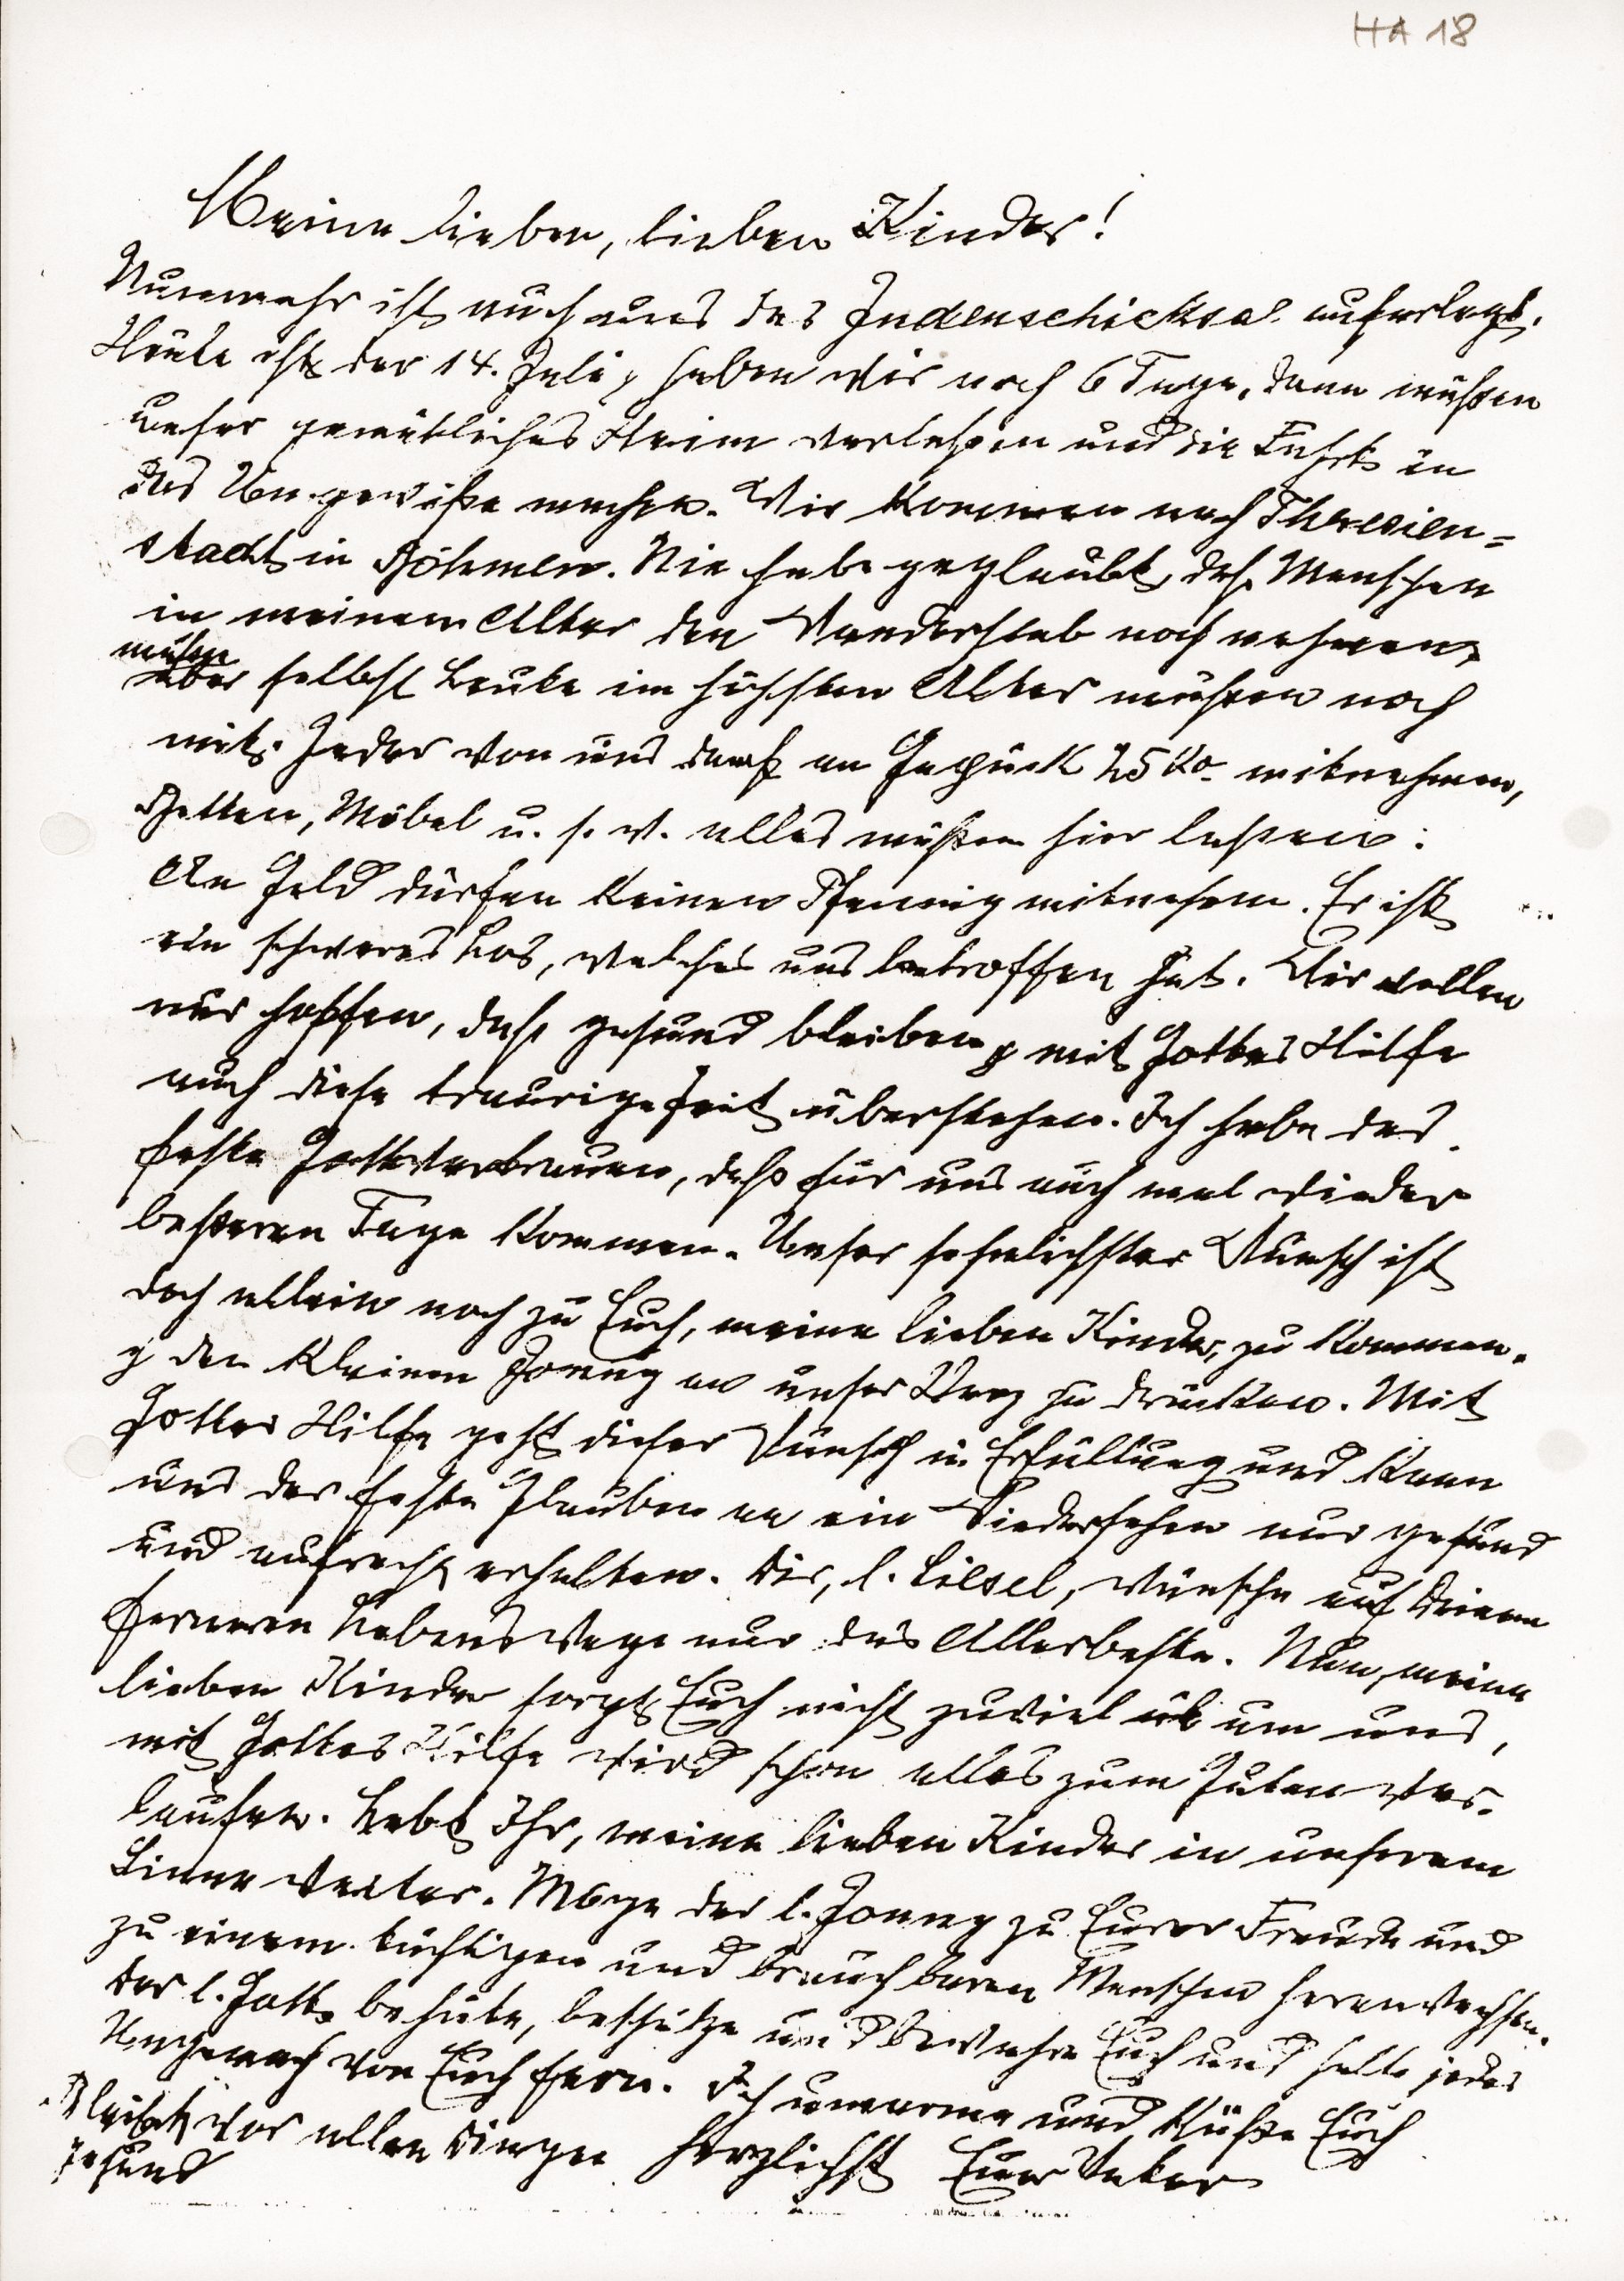 HA 18
Meine lieben, lieben Kinder!
Nunmehr ist auch uns das Judenschicksal auferlegt.
Heute ist der 14. Juli, haben wir noch 6 Tage, dann müßen
unser gemütliches Heim verlaßen und die Fahrt in
das Ungewiße machen. Wir kommen nach Theresien=
stadt in Böhmen. Nie habe geglaubt, daß Menschen
in meinem Alter den Wanderstab noch nehmen
müßen
aber selbst Leute im höchsten Alter müßen noch
mit. Jeder von uns darf an Gepäck 25 Ko. mitnehmen,
Betten, Möbel u. s. w. alles müßen hier laßen.
An Geld dürfen keinen Pfennig mitnehmen. Es ist
ein schweres Los, welches uns betroffen hat. Wir wollen
nur hoffen, daß gesund bleiben & mit Gottes Hilfe
auch diese traurige Zeit überstehen. Ich habe das
feste Gottvertrauen, daß für uns auch mal wieder
beßeren Tage kommen. Unser sehnlichster Wunsch ist
doch allein noch zu Euch, meine lieben Kinder, zu kommen.
& den kleinen Jonny an unser Herz zu drücken. Mit
Gottes Hilfe geht dieser Wunsch in Erfüllung und kann
uns der feste Glauben an ein Wiedersehen nur gesund
und aufrecht erhalten. Dir, l. Liesel, wünsche auf Deinem
ferneren Lebenswege nur das Allerbeste. Nun, meine
lieben Kinder sorgt Euch nicht zuviel um uns,
mit Gottes Hilfe wird schon alles zum Guten ver-
laufen. Lebt Ihr, meine lieben Kinder in unserem
Sinne weiter. Möge der l. Jonny zu Eurer Freude und
zu einem tüchtigen und brauchbaren Menschen heranwachsen.
Der l. Gott behüte, beschütze und bewahre Euch und halte jedes
Ungemach von Euch fern. Ich umarme und küße Euch
Bleibt vor allen Dingen herzlichst Euer Vater
gesund